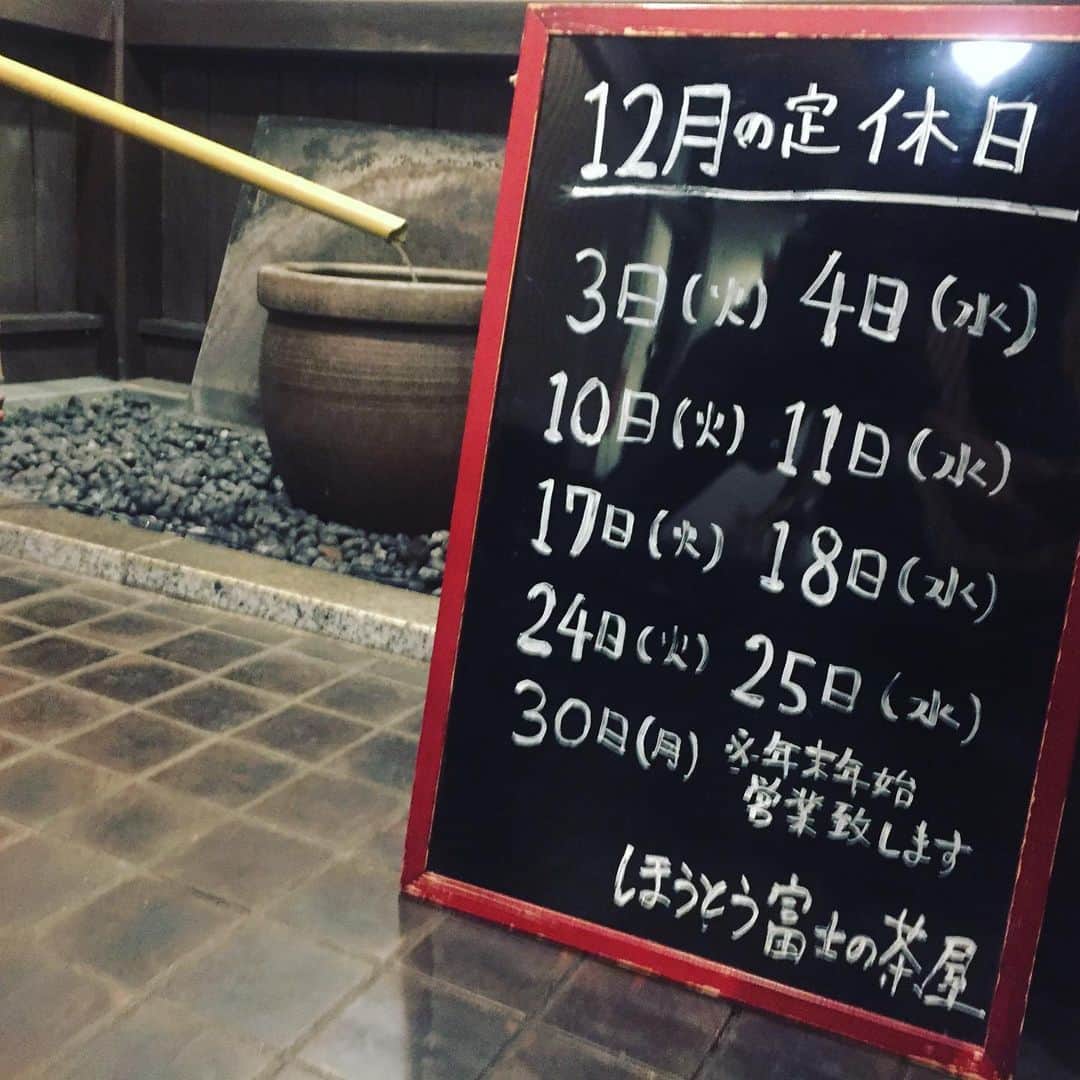 12月の定休日
3日(火) 4日(水)
10日(火) 11日(水)
17日(火) 18日(水)
24日(火) 25日(水)
30日(月) ※年末年始
営業致します
ほうとう富士の茶屋